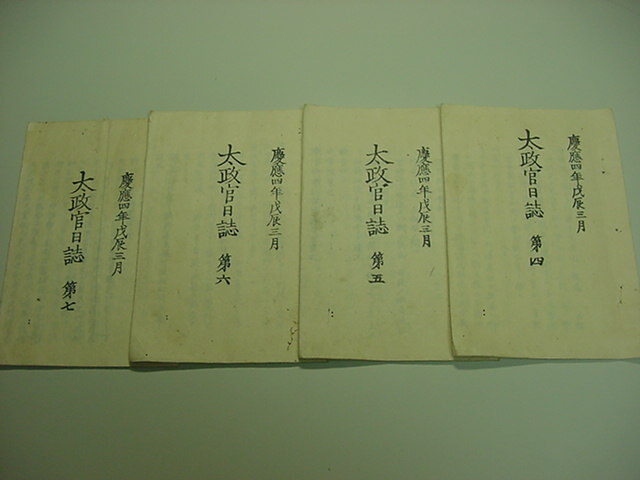 慶應四年戊辰三月
太政官日誌 第四
慶應四年戊辰三月
太政官日誌 第五
慶應四年戊辰三月
太政官日誌 第六
慶應四年戊辰三月
太政官日誌 第七